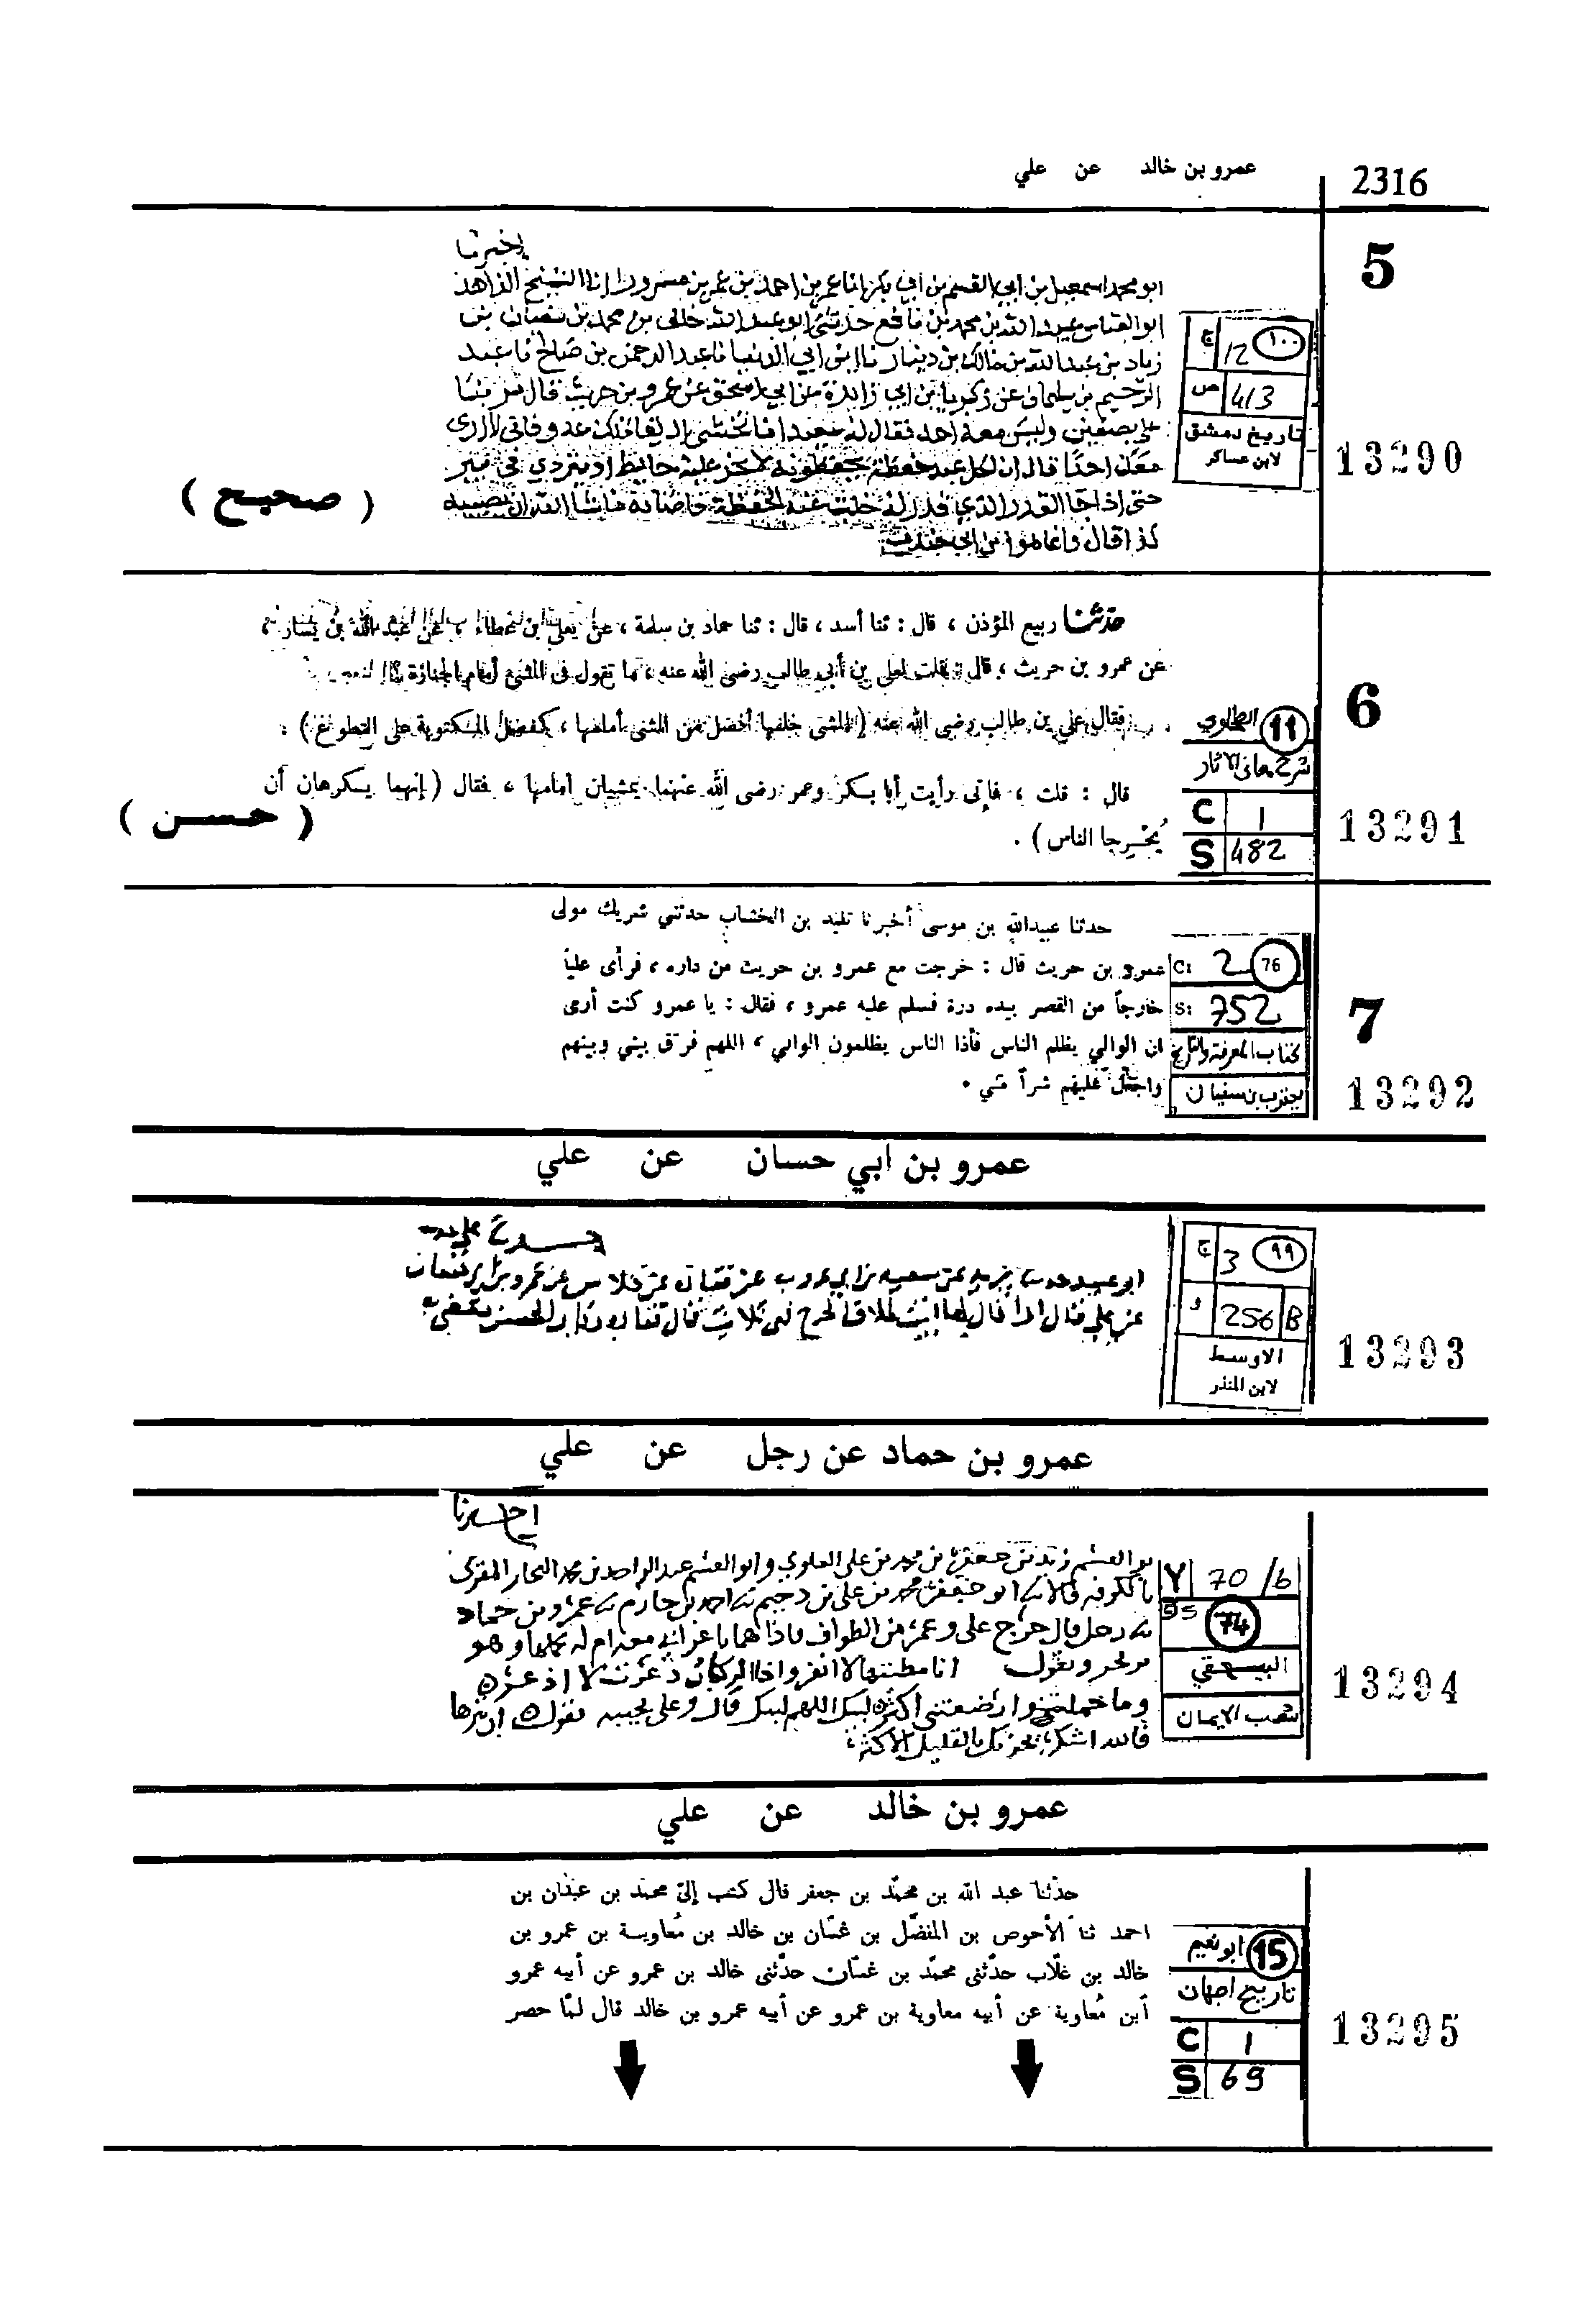 عمرو بن خالد عن علي
2316
5
اخبرنا
ابو محمد اسمعيل بن ابي القسم بن ابي بكر انا عمر بن احمد بن عمر بن مسرور انا الشيخ الزاهد
ابو العباس عبد الله بن محمد بن نافع حدثني ابو عبد الله محمد بن
زياد بن عبد الله بن مالك بن دينار نا ابن ابي الدنيا نا عبد الرحمن بن صالح نا عبد
الرحيم بن سليمان عن زكريا بن ابي زائدة عن ابي اسحق عن عمرو بن حريث قال
علي بصفين وليس معه احد فقال له
معك احدًا قال ان لكل عبد حفظة يحفظونه لا يخر عليه حايط او يتردي في بير
حتى اذا جا القدر الذي قدر له خلت عنه الحفظة فاصابه ما شا الله ان يصيبه
كذا قال وانما هو
( صحيح )
١٠٠
ج 12
ص 413
تاريخ دمشق
لابن عساكر
13290
حدثنا ربيع المؤذن ، قال : ثنا أسد ، قال : ثنا حماد بن سلمة ، عن يعلى بن عطاء ، عن عبد الله بن يسار ،
عن عمرو بن حريث ، قال : قلت لعلي بن أبي طالب رضى الله عنه ، ما تقول فى المشى أمام الجنازة ؟
فقال علي بن طالب رضى الله عنه (المشى خلفها أفضل من المشى أمامها ، كفضل المكتوبة على التطوع) .
قال : قلت ، فإنى رأيت أبا بكر وعمر رضى الله عنهما يمشيان أمامها ، فقال (إنهما يكرهان أن
يُحْرِجا الناس) .
( حسن )
6
الطحاوي 11
شرح معاني الآثار
C 1
S 482
13291
حدثنا عبيدالله بن موسى أخبرنا تليد بن الخشاب حدثني شريك مولى
عمرو بن حريث قال : خرجت مع عمرو بن حريث من داره ، فرأى علياً
خارجاً من القصر بيده درة فسلم عليه عمرو ، فقال : يا عمرو كنت أرى
ان الوالي يظلم الناس فأذا الناس يظلمون الوالي ، اللهم فرق بيني وبينهم
واجعل عليهم شراً مني .
C: 2 76
S: 752
كتاب المعرفة والتاريخ
يعقوب بن سفيان
7
13292
عمرو بن ابي حسان عن علي
ابو عبيد حدثنا يزيد عن سعيد بن ابي عروبة عن قتادة عن خلاس عن عمرو بن
عن علي قال اذا قال لها انت طلاق الحرج فهي ثلاث قال قتادة وكان الحسن يقضي به
٩٩
ج 3
و 256 B
الاوسط
لابن المنذر
13293
عمرو بن حماد عن رجل عن علي
اخبرنا
ابو القسم زيد بن جعفر بن محمد بن علي العلوي وابو القسم عبد الواحد بن محمد النجار المقري
بالكوفه قالا ابو جعفر محمد بن علي بن دحيم احمد بن حازم عمرو بن حماد
رجل قال خرج علي وعمر من الطواف فاذا هما باعرابي معه ام له يحملها وهو
يرتجز ويقول انا مطيتها لا انفر واذا الركاب ذعرت لا اذعر
وما حملتني وارضعتني اكثر لبيك اللهم لبيك قال وعلي يجيبه يقول ان تبرها
فالله اشكر يجزيك بالقليل الاكثر
Y 70/b
74
البيهقي
شعب الايمان
13294
عمرو بن خالد عن علي
حدّثنا عبد الله بن محمّد بن جعفر قال كتب إلىّ محمّد بن عبدان بن
احمد ثنا الأحوص بن المفضّل بن غسّان بن خالد بن مُعاوية بن عمرو بن
خالد بن غلّاب حدّثنى محمّد بن غسّان حدّثنى خالد بن عمرو عن أبيه عمرو
أبن مُعاوية عن أبيه معاوية بن عمرو عن أبيه عمرو بن خالد قال لمّا حصر
ابو نعيم 15
تاريخ اصبهان
C 1
S 69
13295